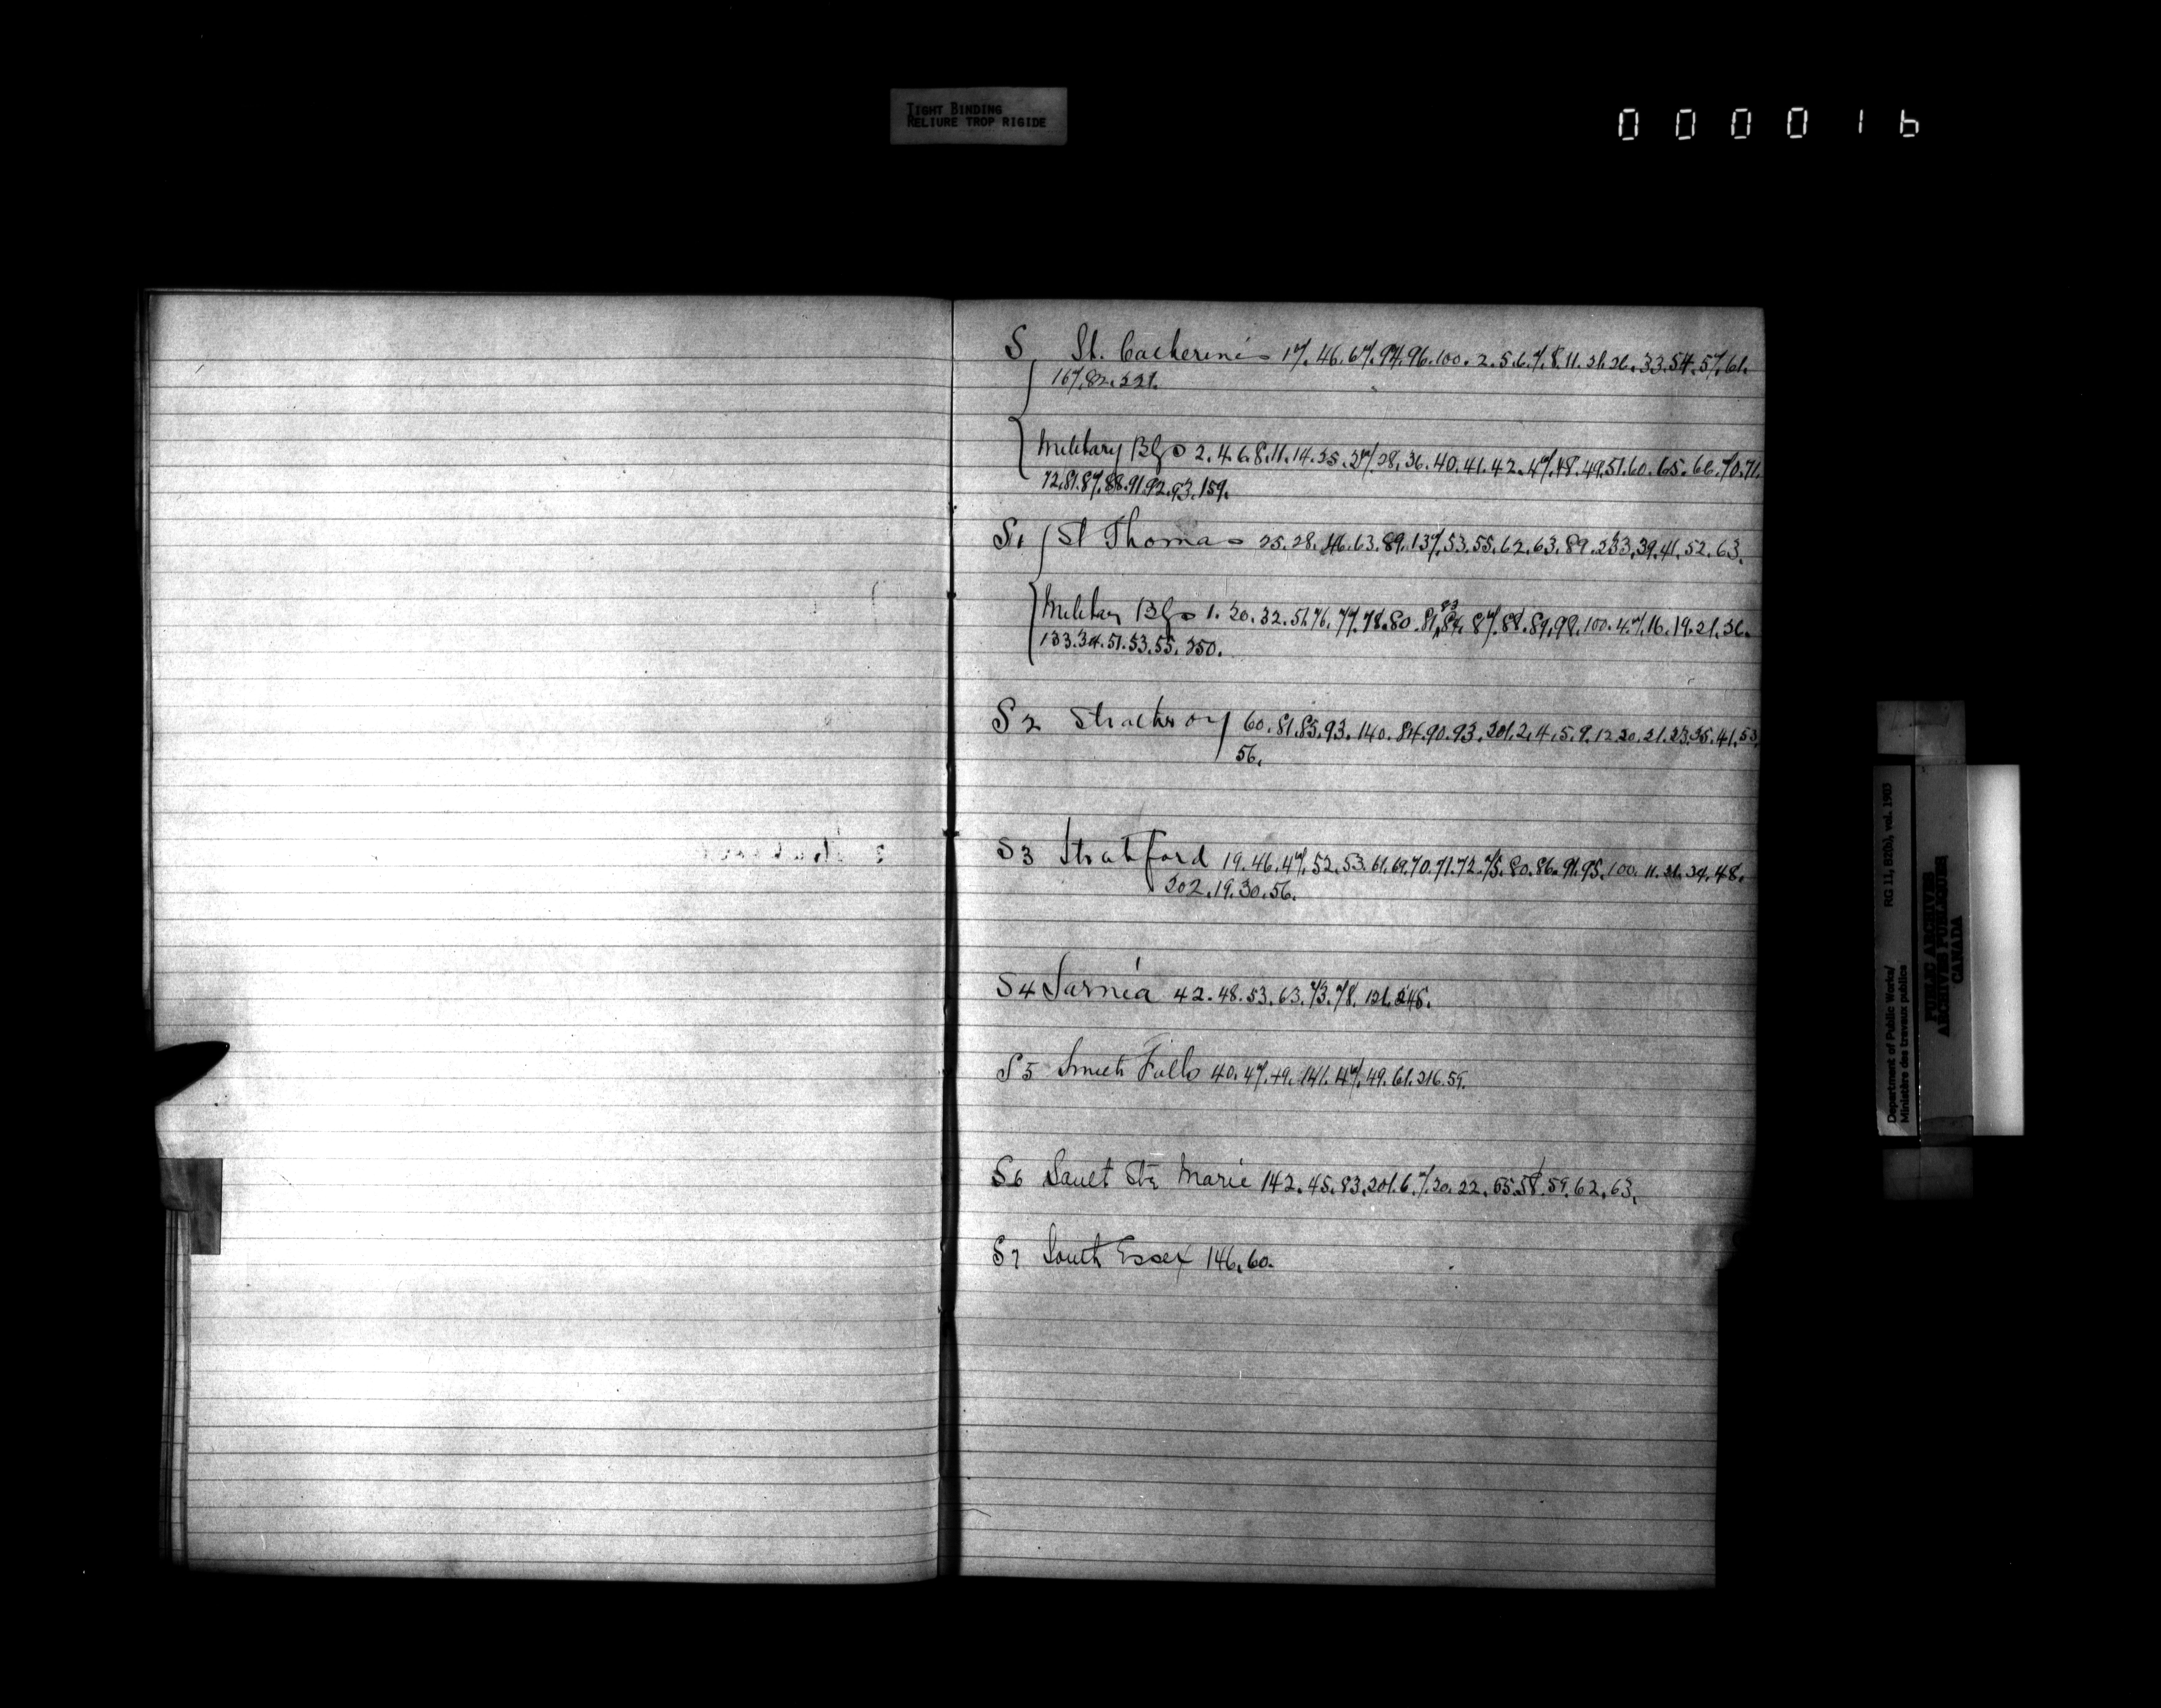 TIGHT BINDING
RELIURE TROP RIGIDE
000016
S, St. Catherines 17. 46. 67. 94. 96. 100. 2. 5. 6. 7. 8. 11. 21. 26. 33. 54. 57. 61.
167. 82. 221.
Military Bgs 2. 4. 6. 8. 11. 14. 25. 27. 28. 36. 40. 41. 42. 47. 48. 49. 51. 60. 65. 66. 70. 71.
72. 81. 87. 88. 91. 92. 93. 159.
S1 St Thomas 25. 28. 46. 63. 89. 137. 53. 55. 62. 63. 89. 233. 39. 41. 52. 63.
83
Military Bgs 1. 20. 32. 51. 76. 77. 78. 80. 81. 84. 87. 88. 89. 98. 100. 4. 7. 16. 19. 21. 26.
133. 34. 51. 53. 55. 250.
S2 Strathroy 60. 81. 85. 93. 140. 84. 90. 93. 201. 2. 4. 5. 9. 12. 20. 21. 23. 35. 41. 53.
56.
S3 Stratford 19. 46. 47. 52. 53. 61. 69. 70. 71. 72. 75. 80. 86. 91. 95. 100. 11. 21. 34. 48.
202. 19. 30. 56.
S4 Sarnia 42. 48. 53. 63. 73. 78. 121. 248.
S5 Smith Falls 40. 47. 49. 141. 147. 49. 61. 216. 59.
S6 Sault Ste Marie 142. 45. 83. 201. 6. 7. 20. 22. 55. 58. 59. 62. 63.
S7 South Essex 146. 60.
Department of Public Works/ RG 11, B2(b), vol. 1903
Ministère des travaux publics
PUBLIC ARCHIVES
ARCHIVES PUBLIQUES
CANADA